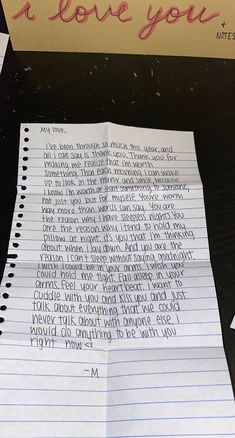 i love you
+
NOTES
My love,
I've been through so much this year, and
all I can say is thank you. Thank you for
making me realize that I'm worth
something. That each morning, I can wake
up to look in the mirror and smile because
I know I'm worth at least something to someone,
not just you but for myself. You're worth
way more than words can say. You are
the reason why I have sleepless nights. You
are the reason why I tend to hold my
pillow at night. It's you that I'm thinking
about when I lay down. And you are the
reason I can't sleep without saying goodnight.
I wish I could be in your arms. I wish you
could hold me tight. Fall asleep in your
arms. Feel your heartbeat. I want to
cuddle with you and kiss you and just
talk about everything that we could
never talk about with anyone else. I
would do anything to be with you
right now <3
-M